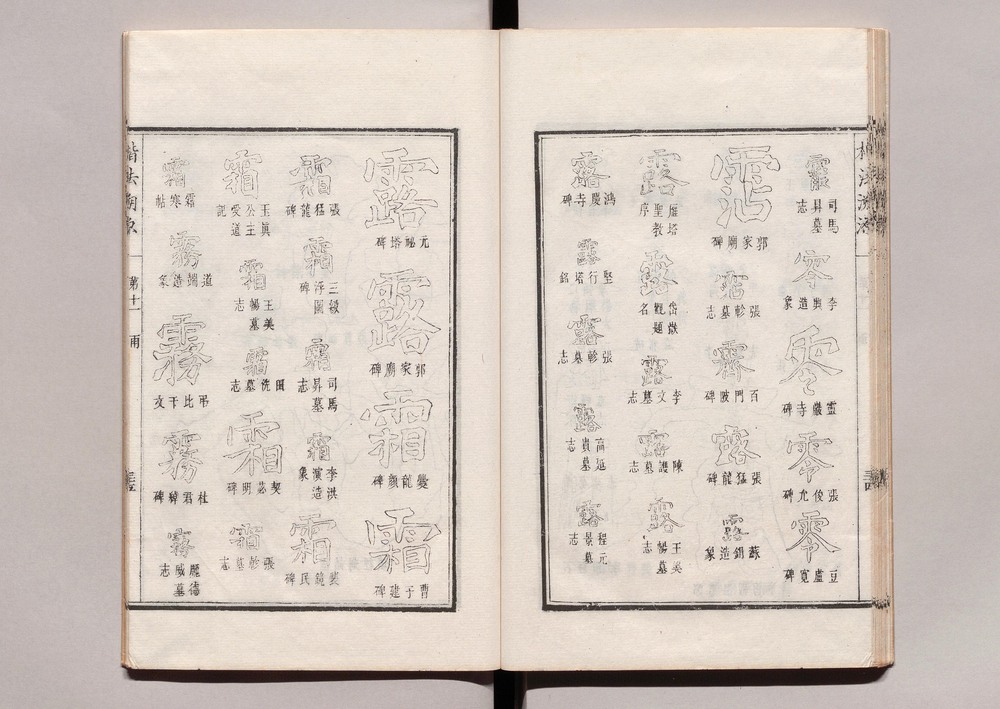 司馬昇墓志
零 李興造象
零 靈巖寺碑
零 張俊允碑
零 豆盧寬碑
霑 郭家廟碑
張軫墓志
霽 百門陂碑
露 張猛龍碑
露 造象
露 雁塔聖教序
露 岱嶽觀題名
露 李文墓志
露 陳護墓志
露 王美暢墓志
露 鴻慶寺碑
露 堅行塔銘
露 張軫墓志
露 高延貴墓志
露 程元景墓志
露 元秘塔碑
露 郭家廟碑
霜 爨龍顏碑
霜 曹子建碑
霜 張猛龍碑
霜 三級浮圖碑
霜 司馬昇墓志
霜 李洪演造象
霜 裴鏡民碑
霜 玉眞公主受道記
霜 王美暢墓志
霜 田侁墓志
霜 契苾明碑
霜 張軫墓志
霜 霜寒帖
霧 道端造象
霧 弔比干文
霧 杜君綽碑
霧 龐德威墓志
楷法溯源 第十一 雨